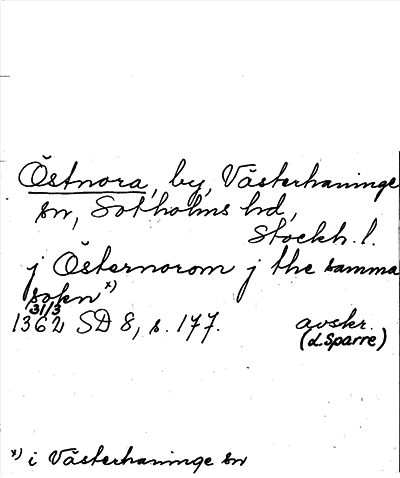 Östnora, by, Västerhaninge
sn, Sotholms hd,
Stockh. l.
j Östernorom j the samma
sokn x)
31/3
1362 SD 8, s. 177. avskr.
(d. Sparre)
x) i Västerhaninge sn